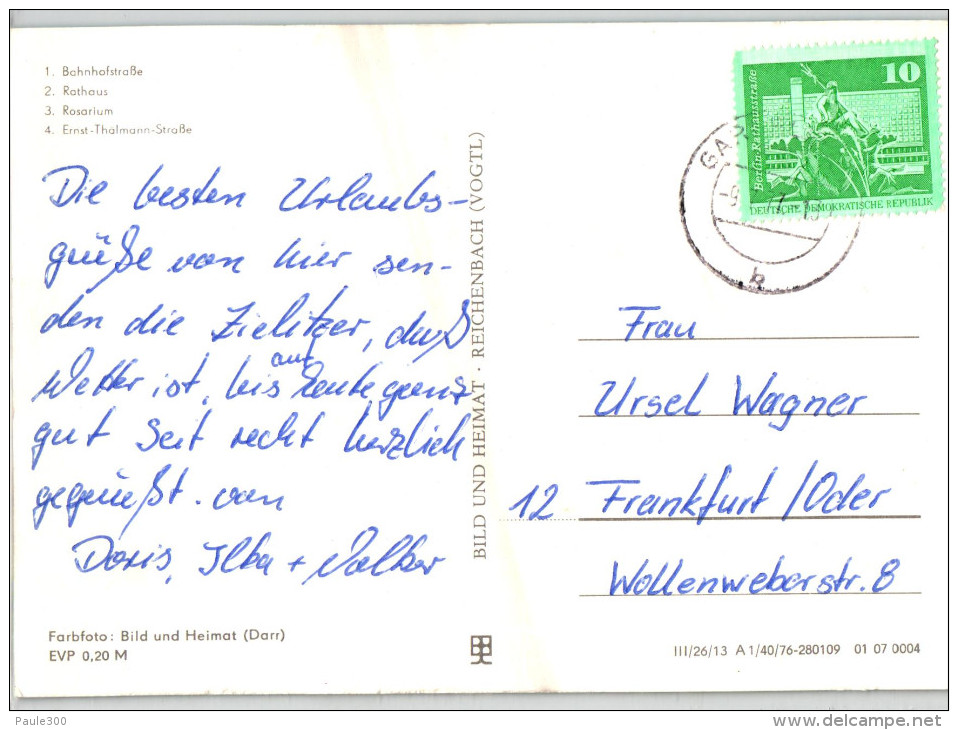 1. Bahnhofstraße
2. Rathaus
3. Rosarium
4. Ernst-Thälmann-Straße
Die besten Urlaubs-
grüße von hier sen-
den die Zielitzer, das
Wetter ist, bis auf heute, ganz
gut Seit recht herzlich
gegrüßt. von
Doris, Ilka + Volker
Farbfoto: Bild und Heimat (Darr)
EVP 0,20 M
BILD UND HEIMAT · REICHENBACH (VOGTL)
10
Berlin-Rathausstraße
DEUTSCHE DEMOKRATISCHE REPUBLIK
Frau
Ursel Wagner
12 Frankfurt/Oder
Wollenweberstr. 8
III/26/13 A 1/40/76-280109 01 07 0004
Paule300
www.delcampe.net